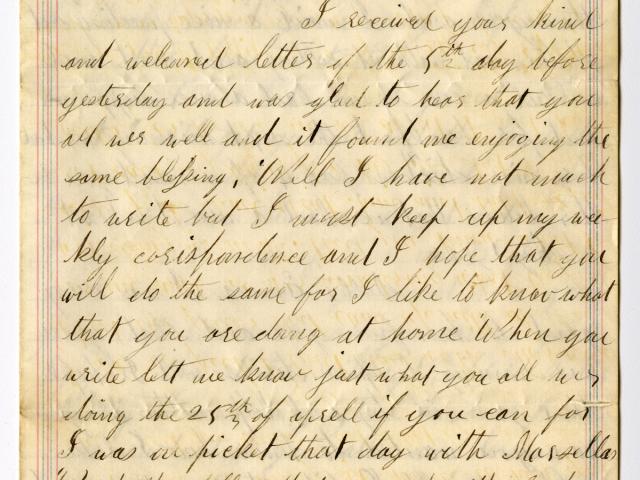 I received your kind
and welcomed letter of the 5th day before
yesterday and was glad to hear that you
al wer well and it found me enjoying the
same blessing. Well I have not much
to write but I must keep up my wee-
kly corispondence and I hope that you
will do the same for I like to know what
that you are doing at home When you
write lett me know just what you all wer
doing the 25th of aprell if you can for
I was on picket that day with Marsellas